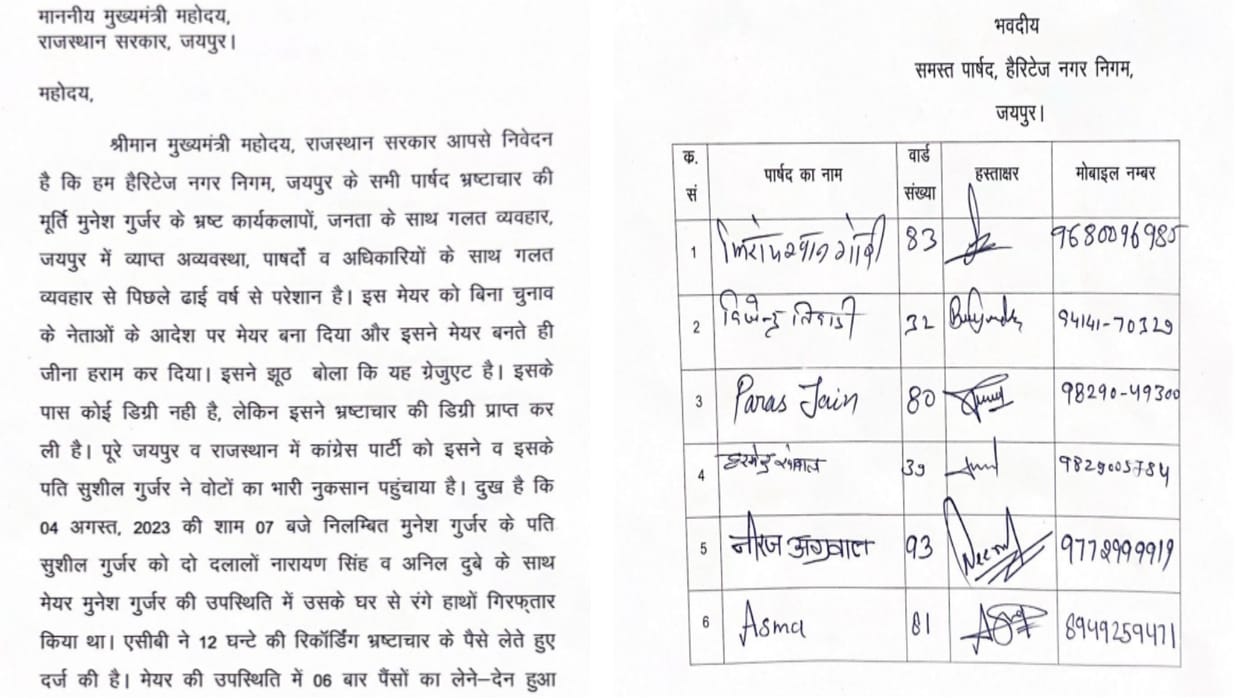 माननीय मुख्यमंत्री महोदय,
राजस्थान सरकार, जयपुर।
महोदय,
श्रीमान मुख्यमंत्री महोदय, राजस्थान सरकार आपसे निवेदन
है कि हम हैरिटेज नगर निगम, जयपुर के सभी पार्षद भ्रष्टाचार की
मूर्ति मुनेश गुर्जर के भ्रष्ट कार्यकलापों, जनता के साथ गलत व्यवहार,
जयपुर में व्याप्त अव्यवस्था, पाषर्दो व अधिकारियों के साथ गलत
व्यवहार से पिछले ढाई वर्ष से परेशान है। इस मेयर को बिना चुनाव
के नेताओं के आदेश पर मेयर बना दिया और इसने मेयर बनते ही
जीना हराम कर दिया। इसने झूठ बोला कि यह ग्रेजुएट है। इसके
पास कोई डिग्री नही है, लेकिन इसने भ्रष्टाचार की डिग्री प्राप्त कर
ली है। पूरे जयपुर व राजस्थान में कांग्रेस पार्टी को इसने व इसके
पति सुशील गुर्जर ने वोटों का भारी नुकसान पहुंचाया है। दुख है कि
04 अगस्त, 2023 की शाम 07 बजे निलम्बित मुनेश गुर्जर के पति
सुशील गुर्जर को दो दलालों नारायण सिंह व अनिल दुबे के साथ
मेयर मुनेश गुर्जर की उपस्थिति में उसके घर से रंगे हाथों गिरफ्तार
किया था। एसीबी ने 12 घन्टे की रिकॉर्डिंग भ्रष्टाचार के पैसे लेते हुए
दर्ज की है। मेयर की उपस्थिति में 06 बार पैंसों का लेने–देन हुआ
भवदीय
समस्त पार्षद, हैरिटेज नगर निगम,
जयपुर।
क. सं पार्षद का नाम वार्ड संख्या हस्ताक्षर मोबाइल नम्बर
1 83 9680096985
2 32 94141-70329
3 Paras Jain 80 98290-49300
4 39 9829005784
5 नीरज अग्रवाल 93 Neeraj 9772999919
6 Asma 81 8949259471